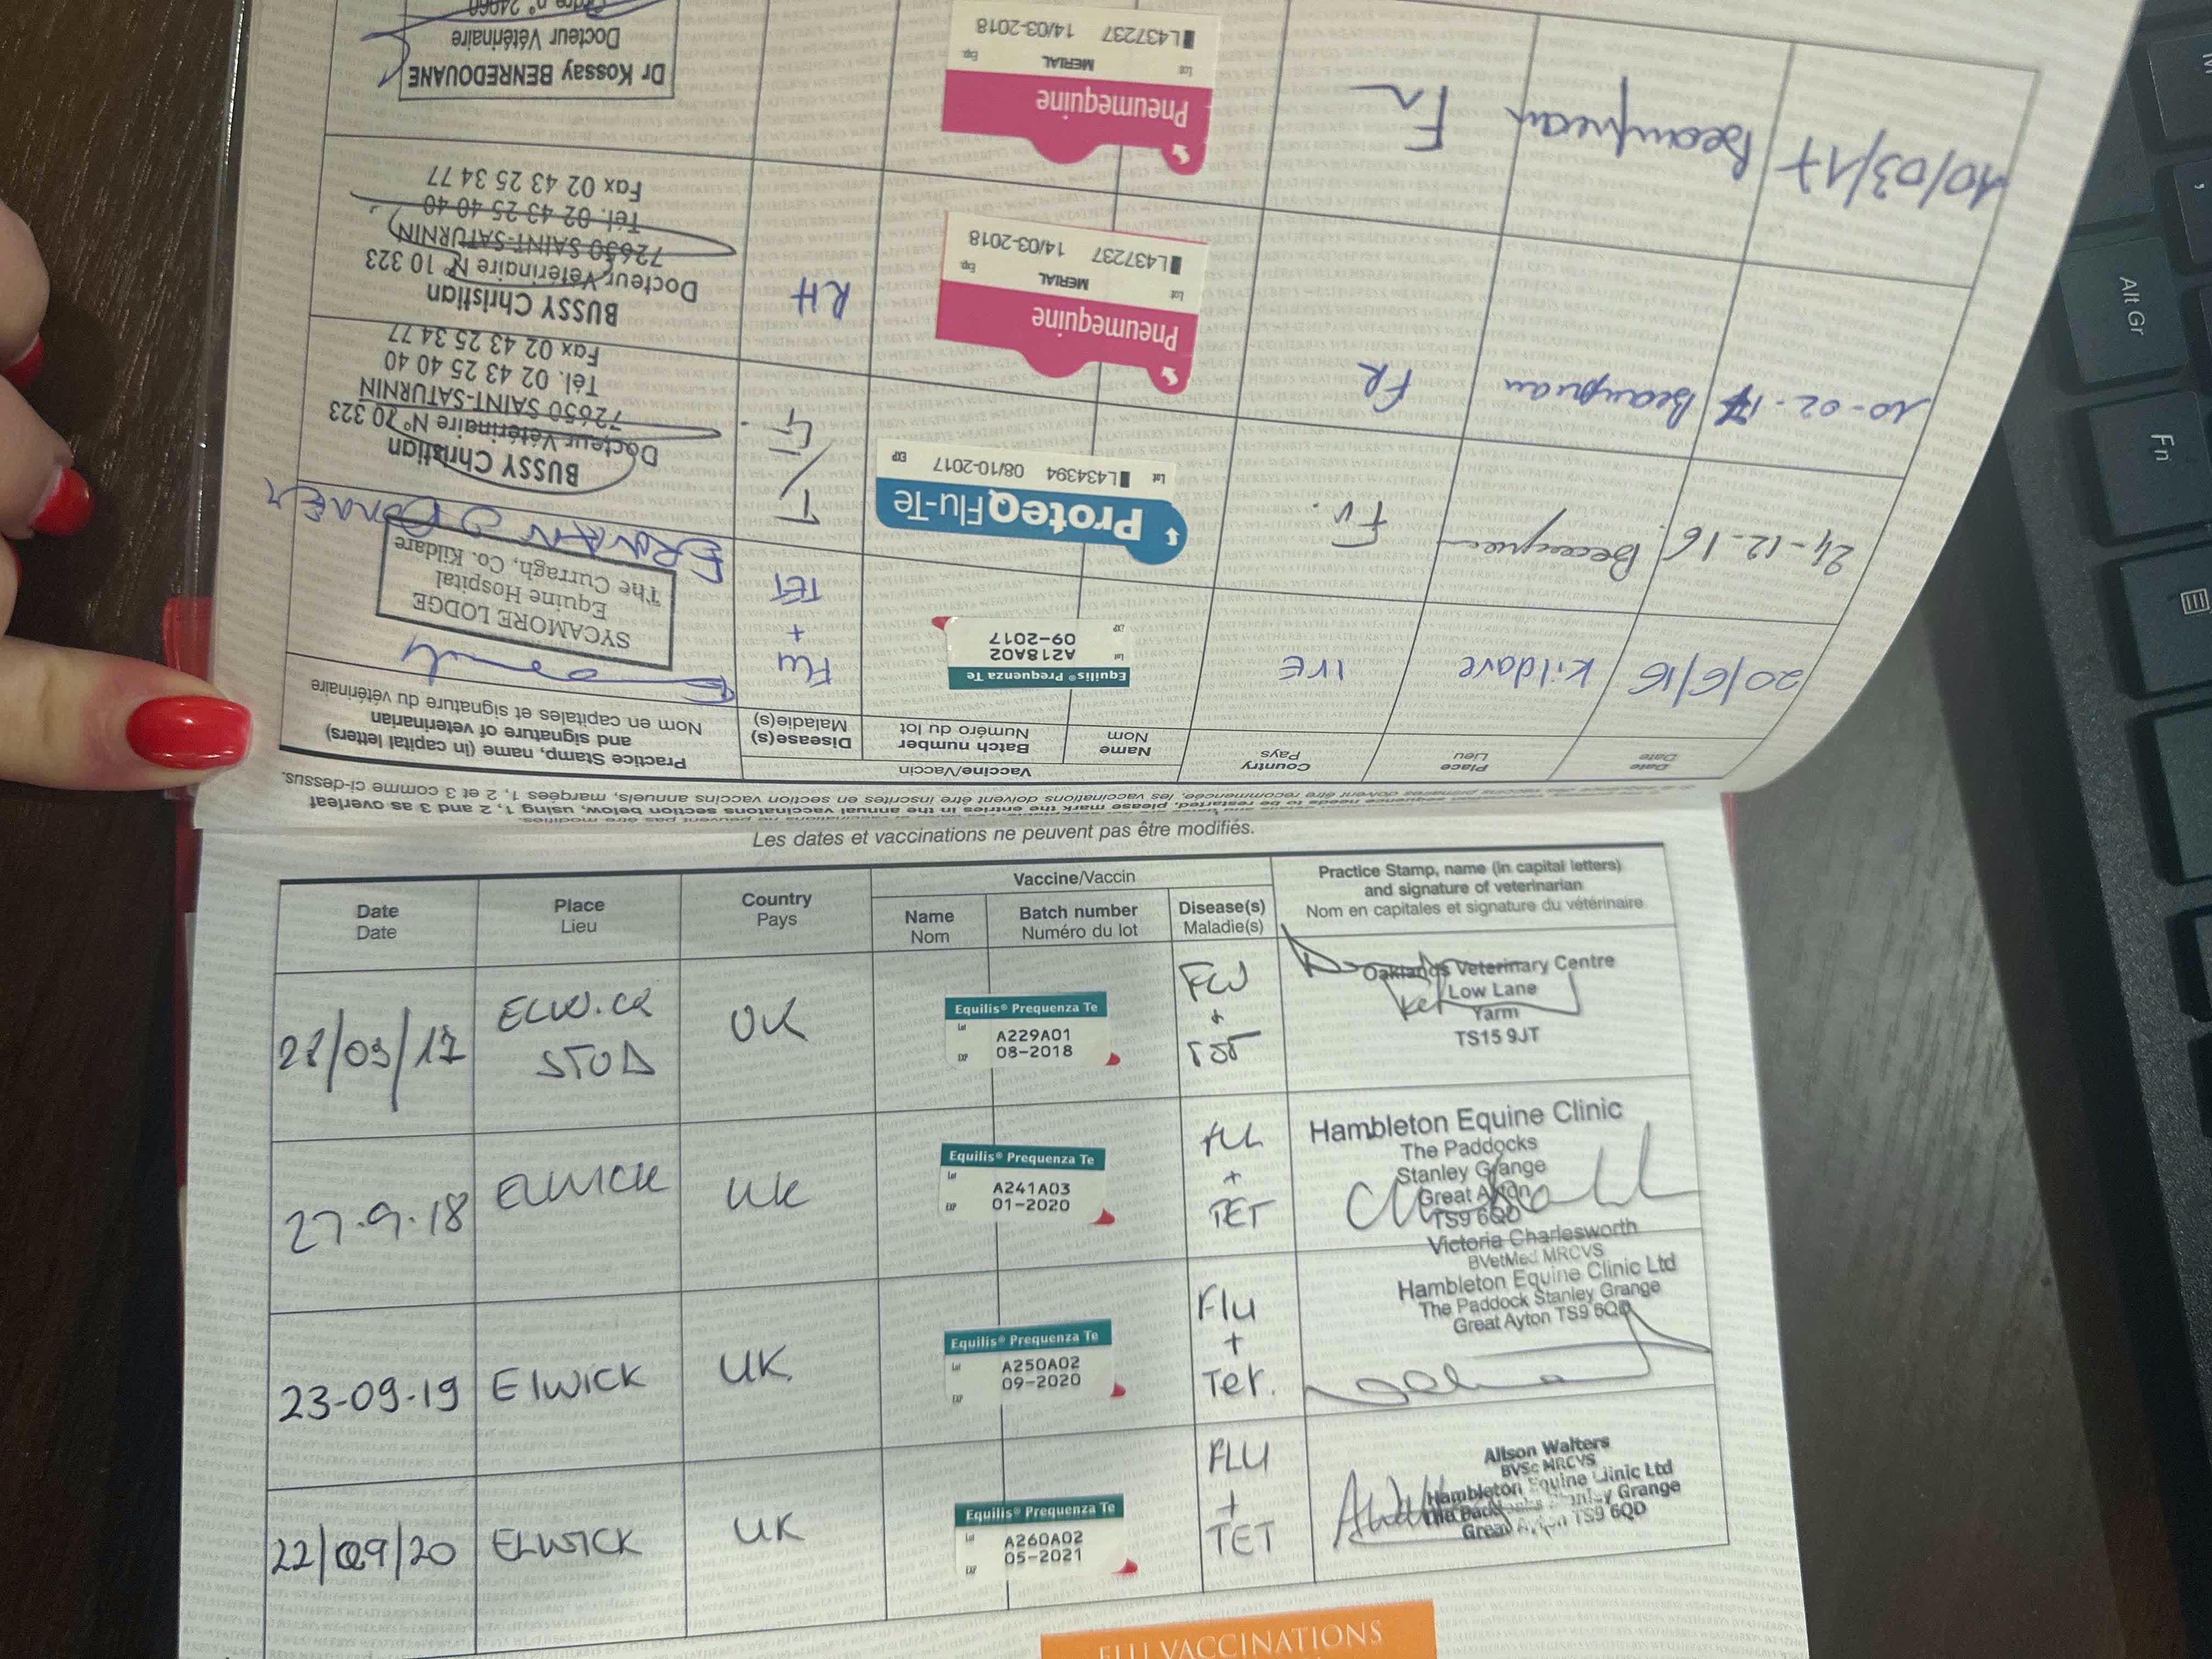 Les dates et vaccinations ne peuvent pas être modifiés.
Date
Date
Place
Lieu
Country
Pays
Vaccine/Vaccin
Name
Nom
Batch number
Numéro du lot
Disease(s)
Maladie(s)
Practice Stamp, name (in capital letters)
and signature of veterinarian
Nom en capitales et signature du vétérinaire
ELWICK
STUD
UK
Equilis® Prequenza Te
Lot A229A01
EXP 08-2018
FLU
+
TET
Oaklands Veterinary Centre
Low Lane
Yarm
TS15 9JT
27.9.18
ELWICK
UK
Equilis® Prequenza Te
Lot A241A03
EXP 01-2020
FLU
+
TET
Hambleton Equine Clinic
The Paddocks
Stanley Grange
Great Ayton
TS9 6QD
23-09-19
Elwick
UK.
Equilis® Prequenza Te
Lot A250A02
EXP 09-2020
Flu
+
Tet.
Victoria Charlesworth
BVetMed MRCVS
Hambleton Equine Clinic Ltd
The Paddock Stanley Grange
Great Ayton TS9 6QD
22/09/20
ELWICK
UK
Equilis® Prequenza Te
Lot A260A02
EXP 05-2021
FLU
+
TET
Alison Walters
BVSc MRCVS
Hambleton Equine Clinic Ltd
Stanley Grange
Great Ayton TS9 6QD
FLU VACCINATIONS
sequence needs to be restarted, please mark the entries in the annual vaccinations section below, using 1, 2 and 3 as overleaf
recommencée, les vaccinations doivent être inscrites en section vaccins annuels, marqées 1, 2 et 3 comme ci-dessus.
Date
Date
Place
Lieu
Country
Pays
Vaccine/Vaccin
Name
Nom
Batch number
Numéro du lot
Disease(s)
Maladie(s)
Practice Stamp, name (in capital letters)
and signature of veterinarian
Nom en capitales et signature du vétérinaire
20/6/16
Kildare
IRE
Equilis® Prequenza Te
Lot A218A02
EXP 09-2017
Flu
+
TET
SYCAMORE LODGE
Equine Hospital
The Curragh, Co. Kildare
24-12-16
ProteqFlu-Te
Lot L434394 08/10-2017 EXP
BUSSY Christian
Docteur Vétérinaire N° 10 323
72650 SAINT-SATURNIN
Tél. 02 43 25 40 40
Fax 02 43 25 34 77
10-02-17
FR
Pneumequine
MERIAL
Lot L437237 Exp 14/03-2018
RH
BUSSY Christian
Docteur Vétérinaire N° 10 323
72650 SAINT-SATURNIN
Tél. 02 43 25 40 40
Fax 02 43 25 34 77
10/03/17
Pneumequine
MERIAL
Lot L437237 Exp 14/03-2018
Dr Kossay BENREDOUANE
Docteur Vétérinaire
Alt Gr
Fn